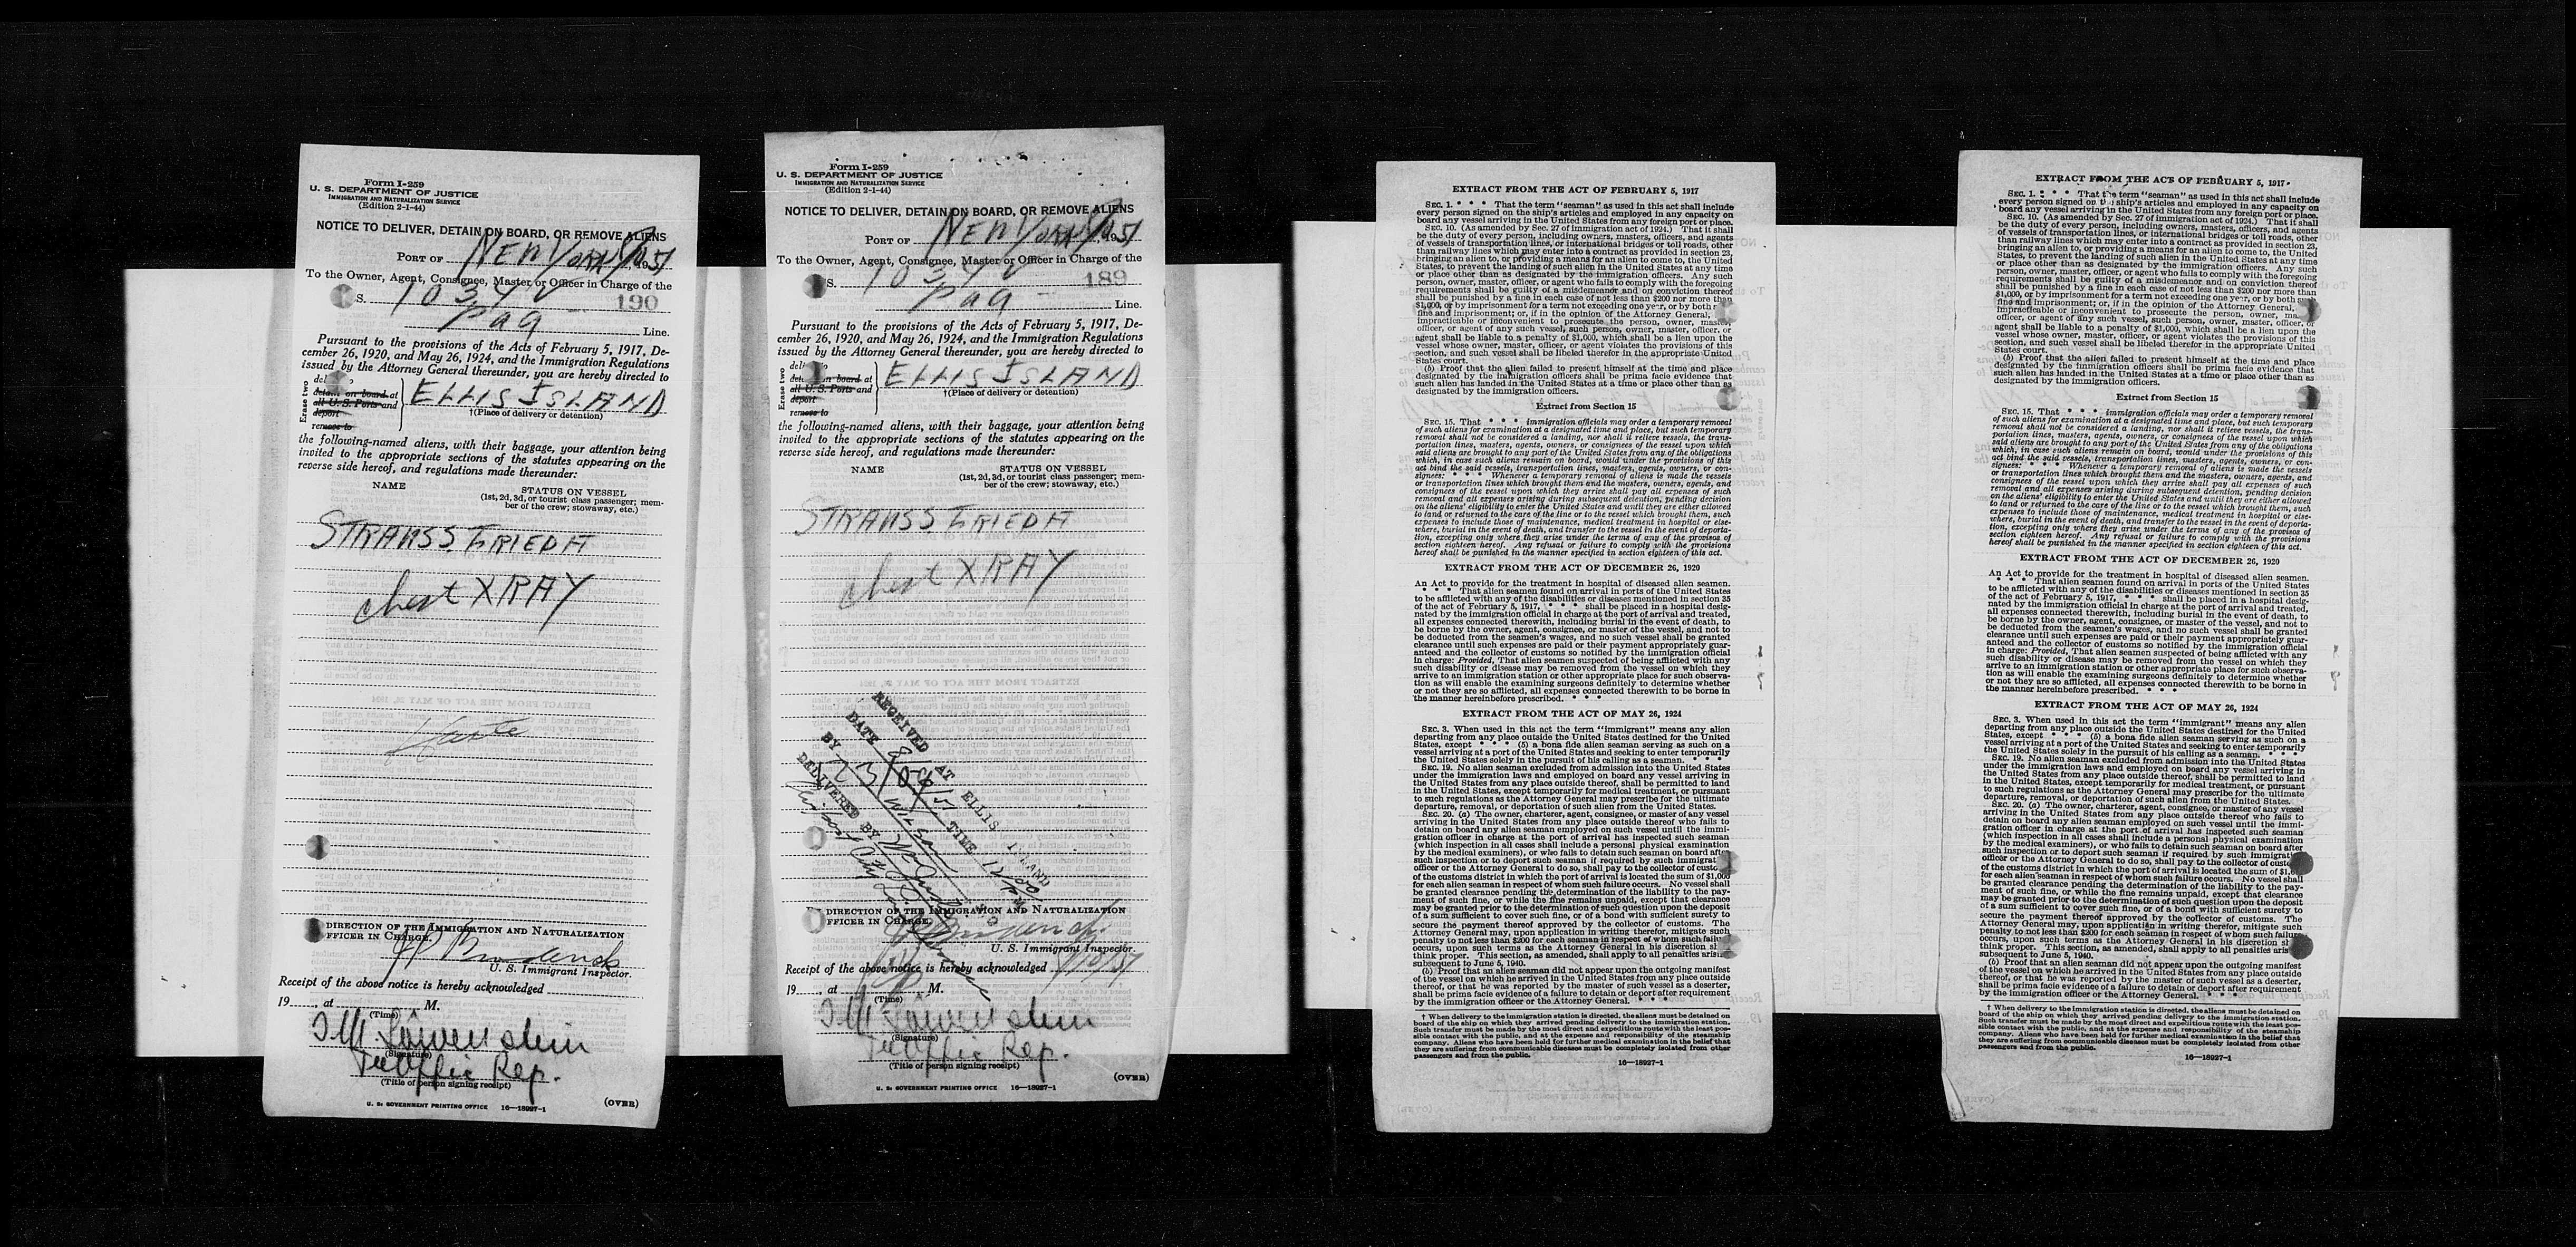 Form I-259
U. S. DEPARTMENT OF JUSTICE
IMMIGRATION AND NATURALIZATION SERVICE
(Edition 2-1-44)
NOTICE TO DELIVER, DETAIN ON BOARD, OR REMOVE ALIENS
PORT OF NEW YORK 1951
To the Owner, Agent, Consignee, Master or Officer in Charge of the
S. 1034V 190
Paq Line.
Pursuant to the provisions of the Acts of February 5, 1917, De-
cember 26, 1920, and May 26, 1924, and the Immigration Regulations
issued by the Attorney General thereunder, you are hereby directed to
Erase two
detain on board at
all U. S. Ports and
deport
remove to
ELLIS ISLAND
†(Place of delivery or detention)
the following-named aliens, with their baggage, your attention being
invited to the appropriate sections of the statutes appearing on the
reverse side hereof, and regulations made thereunder:
NAME STATUS ON VESSEL
(1st, 2d, 3d, or tourist class passenger; mem-
ber of the crew; stowaway, etc.)
STRAUSS FRIEDA
chest XRAY
DIRECTION OF THE IMMIGRATION AND NATURALIZATION
FFICER IN CHARGE.
U. S. Immigrant Inspector.
Receipt of the above notice is hereby acknowledged
19, at M.
(Time)
Löwenstein
(Signature)
Traffic Rep.
(Title of person signing receipt)
U. S. GOVERNMENT PRINTING OFFICE 16—18927-1 (OVER)
Form I-259
U. S. DEPARTMENT OF JUSTICE
IMMIGRATION AND NATURALIZATION SERVICE
(Edition 2-1-44)
NOTICE TO DELIVER, DETAIN ON BOARD, OR REMOVE ALIENS
PORT OF NEW YORK 1951
To the Owner, Agent, Consignee, Master or Officer in Charge of the
S. 1034V 189
Paq Line.
Pursuant to the provisions of the Acts of February 5, 1917, De-
cember 26, 1920, and May 26, 1924, and the Immigration Regulations
issued by the Attorney General thereunder, you are hereby directed to
Erase two
detain on board at
all U. S. Ports and
deport
remove to
ELLIS ISLAND
†(Place of delivery or detention)
the following-named aliens, with their baggage, your attention being
invited to the appropriate sections of the statutes appearing on the
reverse side hereof, and regulations made thereunder:
NAME STATUS ON VESSEL
(1st, 2d, 3d, or tourist class passenger; mem-
ber of the crew; stowaway, etc.)
STRAUSS FRIEDA
chest XRAY
RECEIVED AT ELLIS ISLAND
DATE TIME
BY
DELIVERED BY
DIRECTION OF THE IMMIGRATION AND NATURALIZATION
FFICER IN CHARGE.
U. S. Immigrant Inspector.
Receipt of the above notice is hereby acknowledged
19, at M.
(Time)
Löwenstein
(Signature)
Traffic Rep.
(Title of person signing receipt)
U. S. GOVERNMENT PRINTING OFFICE 16—18927-1 (OVER)
EXTRACT FROM THE ACT OF FEBRUARY 5, 1917
SEC. 1. * * * That the term "seaman" as used in this act shall include
every person signed on the ship's articles and employed in any capacity on
board any vessel arriving in the United States from any foreign port or place.
SEC. 10. (As amended by Sec. 27 of immigration act of 1924.) That it shall
be the duty of every person, including owners, masters, officers, and agents
of vessels of transportation lines, or international bridges or toll roads, other
than railway lines which may enter into a contract as provided in section 23,
bringing an alien to, or providing a means for an alien to come to, the United
States, to prevent the landing of such alien in the United States at any time
or place other than as designated by the immigration officers. Any such
person, owner, master, officer, or agent who fails to comply with the foregoing
requirements shall be guilty of a misdemeanor and on conviction thereof
shall be punished by a fine in each case of not less than $200 nor more than
$1,000, or by imprisonment for a term not exceeding one year, or by both such
fine and imprisonment; or, if in the opinion of the Attorney General,
impracticable or inconvenient to prosecute the person, owner, master,
officer, or agent of any such vessel, such person, owner, master, officer, or
agent shall be liable to a penalty of $1,000, which shall be a lien upon the
vessel whose owner, master, officer, or agent violates the provisions of this
section, and such vessel shall be libeled therefor in the appropriate United
States court.
(b) Proof that the alien failed to present himself at the time and place
designated by the immigration officers shall be prima facie evidence that
such alien has landed in the United States at a time or place other than as
designated by the immigration officers.
Extract from Section 15
SEC. 15. That * * * immigration officials may order a temporary removal
of such aliens for examination at a designated time and place, but such temporary
removal shall not be considered a landing, nor shall it relieve vessels, the trans-
portation lines, masters, agents, owners, or consignees of the vessel upon which
said aliens are brought to any port of the United States from any of the obligations
which, in case such aliens remain on board, would under the provisions of this
act bind the said vessels, transportation lines, masters, agents, owners, or con-
signees: * * * Whenever a temporary removal of aliens is made the vessels
or transportation lines which brought them and the masters, owners, agents, and
consignees of the vessel upon which they arrive shall pay all expenses of such
removal and all expenses arising during subsequent detention, pending decision
on the aliens' eligibility to enter the United States and until they are either allowed
to land or returned to the care of the line or to the vessel which brought them, such
expenses to include those of maintenance, medical treatment in hospital or else-
where, burial in the event of death, and transfer to the vessel in the event of deporta-
tion, excepting only where they arise under the terms of any of the provisos of
section eighteen hereof. Any refusal or failure to comply with the provisions
hereof shall be punished in the manner specified in section eighteen of this act.
EXTRACT FROM THE ACT OF DECEMBER 26, 1920
An Act to provide for the treatment in hospital of diseased alien seamen.
* * * That alien seamen found on arrival in ports of the United States
to be afflicted with any of the disabilities or diseases mentioned in section 35
of the act of February 5, 1917, * * * shall be placed in a hospital desig-
nated by the immigration official in charge at the port of arrival and treated,
all expenses connected therewith, including burial in the event of death, to
be borne by the owner, agent, consignee, or master of the vessel, and not to
be deducted from the seamen's wages, and no such vessel shall be granted
clearance until such expenses are paid or their payment appropriately guar-
anteed and the collector of customs so notified by the immigration official
in charge: Provided, That alien seamen suspected of being afflicted with any
such disability or disease may be removed from the vessel on which they
arrive to an immigration station or other appropriate place for such observa-
tion as will enable the examining surgeons definitely to determine whether
or not they are so afflicted, all expenses connected therewith to be borne in
the manner hereinbefore prescribed. * * *
EXTRACT FROM THE ACT OF MAY 26, 1924
SEC. 3. When used in this act the term "immigrant" means any alien
departing from any place outside the United States destined for the United
States, except * * * (5) a bona fide alien seaman serving as such on a
vessel arriving at a port of the United States and seeking to enter temporarily
the United States solely in the pursuit of his calling as a seaman. * * *
SEC. 19. No alien seaman excluded from admission into the United States
under the immigration laws and employed on board any vessel arriving in
the United States from any place outside thereof, shall be permitted to land
in the United States, except temporarily for medical treatment, or pursuant
to such regulations as the Attorney General may prescribe for the ultimate
departure, removal, or deportation of such alien from the United States.
SEC. 20. (a) The owner, charterer, agent, consignee, or master of any vessel
arriving in the United States from any place outside thereof who fails to
detain on board any alien seaman employed on such vessel until the immi-
gration officer in charge at the port of arrival has inspected such seaman
(which inspection in all cases shall include a personal physical examination
by the medical examiners), or who fails to detain such seaman on board after
such inspection or to deport such seaman if required by such immigrat
officer or the Attorney General to do so, shall pay to the collector of custo
of the customs district in which the port of arrival is located the sum of $1,000
for each alien seaman in respect of whom such failure occurs. No vessel shall
be granted clearance pending the determination of the liability to the pay-
ment of such fine, or while the fine remains unpaid, except that clearance
may be granted prior to the determination of such question upon the deposit
of a sum sufficient to cover such fine, or of a bond with sufficient surety to
secure the payment thereof approved by the collector of customs. The
Attorney General may, upon application in writing therefor, mitigate such
penalty to not less than $200 for each seaman in respect of whom such failure
occurs, upon such terms as the Attorney General in his discretion sh
think proper. This section, as amended, shall apply to all penalties arisin
subsequent to June 5, 1940.
(b) Proof that an alien seaman did not appear upon the outgoing manifest
of the vessel on which he arrived in the United States from any place outside
thereof, or that he was reported by the master of such vessel as a deserter,
shall be prima facie evidence of a failure to detain or deport after requirement
by the immigration officer or the Attorney General. * * *
† When delivery to the immigration station is directed, the aliens must be detained on
board of the ship on which they arrived pending delivery to the immigration station.
Such transfer must be made by the most direct and expeditious route with the least pos-
sible contact with the public, and at the expense and responsibility of the steamship
company. Aliens who have been held for further medical examination in the belief that
they are suffering from communicable diseases must be completely isolated from other
passengers and from the public.
16—18927-1
EXTRACT FROM THE ACT OF FEBRUARY 5, 1917
SEC. 1. * * * That the term "seaman" as used in this act shall include
every person signed on the ship's articles and employed in any capacity on
board any vessel arriving in the United States from any foreign port or place.
SEC. 10. (As amended by Sec. 27 of immigration act of 1924.) That it shall
be the duty of every person, including owners, masters, officers, and agents
of vessels of transportation lines, or international bridges or toll roads, other
than railway lines which may enter into a contract as provided in section 23,
bringing an alien to, or providing a means for an alien to come to, the United
States, to prevent the landing of such alien in the United States at any time
or place other than as designated by the immigration officers. Any such
person, owner, master, officer, or agent who fails to comply with the foregoing
requirements shall be guilty of a misdemeanor and on conviction thereof
shall be punished by a fine in each case of not less than $200 nor more than
$1,000, or by imprisonment for a term not exceeding one year, or by both
fine and imprisonment; or, if in the opinion of the Attorney General,
impracticable or inconvenient to prosecute the person, owner, mas
officer, or agent of any such vessel, such person, owner, master, officer, or
agent shall be liable to a penalty of $1,000, which shall be a lien upon the
vessel whose owner, master, officer, or agent violates the provisions of this
section, and such vessel shall be libeled therefor in the appropriate United
States court.
(b) Proof that the alien failed to present himself at the time and place
designated by the immigration officers shall be prima facie evidence that
such alien has landed in the United States at a time or place other than as
designated by the immigration officers.
Extract from Section 15
SEC. 15. That * * * immigration officials may order a temporary removal
of such aliens for examination at a designated time and place, but such temporary
removal shall not be considered a landing, nor shall it relieve vessels, the trans-
portation lines, masters, agents, owners, or consignees of the vessel upon which
said aliens are brought to any port of the United States from any of the obligations
which, in case such aliens remain on board, would under the provisions of this
act bind the said vessels, transportation lines, masters, agents, owners, or con-
signees: * * * Whenever a temporary removal of aliens is made the vessels
or transportation lines which brought them and the masters, owners, agents, and
consignees of the vessel upon which they arrive shall pay all expenses of such
removal and all expenses arising during subsequent detention, pending decision
on the aliens' eligibility to enter the United States and until they are either allowed
to land or returned to the care of the line or to the vessel which brought them, such
expenses to include those of maintenance, medical treatment in hospital or else-
where, burial in the event of death, and transfer to the vessel in the event of deporta-
tion, excepting only where they arise under the terms of any of the provisos of
section eighteen hereof. Any refusal or failure to comply with the provisions
hereof shall be punished in the manner specified in section eighteen of this act.
EXTRACT FROM THE ACT OF DECEMBER 26, 1920
An Act to provide for the treatment in hospital of diseased alien seamen.
* * * That alien seamen found on arrival in ports of the United States
to be afflicted with any of the disabilities or diseases mentioned in section 35
of the act of February 5, 1917, * * * shall be placed in a hospital desig-
nated by the immigration official in charge at the port of arrival and treated,
all expenses connected therewith, including burial in the event of death, to
be borne by the owner, agent, consignee, or master of the vessel, and not to
be deducted from the seamen's wages, and no such vessel shall be granted
clearance until such expenses are paid or their payment appropriately guar-
anteed and the collector of customs so notified by the immigration official
in charge: Provided, That alien seamen suspected of being afflicted with any
such disability or disease may be removed from the vessel on which they
arrive to an immigration station or other appropriate place for such observa-
tion as will enable the examining surgeons definitely to determine whether
or not they are so afflicted, all expenses connected therewith to be borne in
the manner hereinbefore prescribed. * * *
EXTRACT FROM THE ACT OF MAY 26, 1924
SEC. 3. When used in this act the term "immigrant" means any alien
departing from any place outside the United States destined for the United
States, except * * * (5) a bona fide alien seaman serving as such on a
vessel arriving at a port of the United States and seeking to enter temporarily
the United States solely in the pursuit of his calling as a seaman. * * *
SEC. 19. No alien seaman excluded from admission into the United States
under the immigration laws and employed on board any vessel arriving in
the United States from any place outside thereof, shall be permitted to land
in the United States, except temporarily for medical treatment, or pursuant
to such regulations as the Attorney General may prescribe for the ultimate
departure, removal, or deportation of such alien from the United States.
SEC. 20. (a) The owner, charterer, agent, consignee, or master of any vessel
arriving in the United States from any place outside thereof who fails to
detain on board any alien seaman employed on such vessel until the immi-
gration officer in charge at the port of arrival has inspected such seaman
(which inspection in all cases shall include a personal physical examination
by the medical examiners), or who fails to detain such seaman on board after
such inspection or to deport such seaman if required by such immigrati
officer or the Attorney General to do so, shall pay to the collector of custo
of the customs district in which the port of arrival is located the sum of $1,0
for each alien seaman in respect of whom such failure occurs. No vessel shall
be granted clearance pending the determination of the liability to the pay-
ment of such fine, or while the fine remains unpaid, except that clearance
may be granted prior to the determination of such question upon the deposit
of a sum sufficient to cover such fine, or of a bond with sufficient surety to
secure the payment thereof approved by the collector of customs. The
Attorney General may, upon application in writing therefor, mitigate such
penalty to not less than $200 for each seaman in respect of whom such failure
occurs, upon such terms as the Attorney General in his discretion sh
think proper. This section, as amended, shall apply to all penalties aris
subsequent to June 5, 1940.
(b) Proof that an alien seaman did not appear upon the outgoing manifest
of the vessel on which he arrived in the United States from any place outside
thereof, or that he was reported by the master of such vessel as a deserter,
shall be prima facie evidence of a failure to detain or deport after requirement
by the immigration officer or the Attorney General. * * *
† When delivery to the immigration station is directed, the aliens must be detained on
board of the ship on which they arrived pending delivery to the immigration station.
Such transfer must be made by the most direct and expeditious route with the least pos-
sible contact with the public, and at the expense and responsibility of the steamship
company. Aliens who have been held for further medical examination in the belief that
they are suffering from communicable diseases must be completely isolated from other
passengers and from the public.
16—18927-1